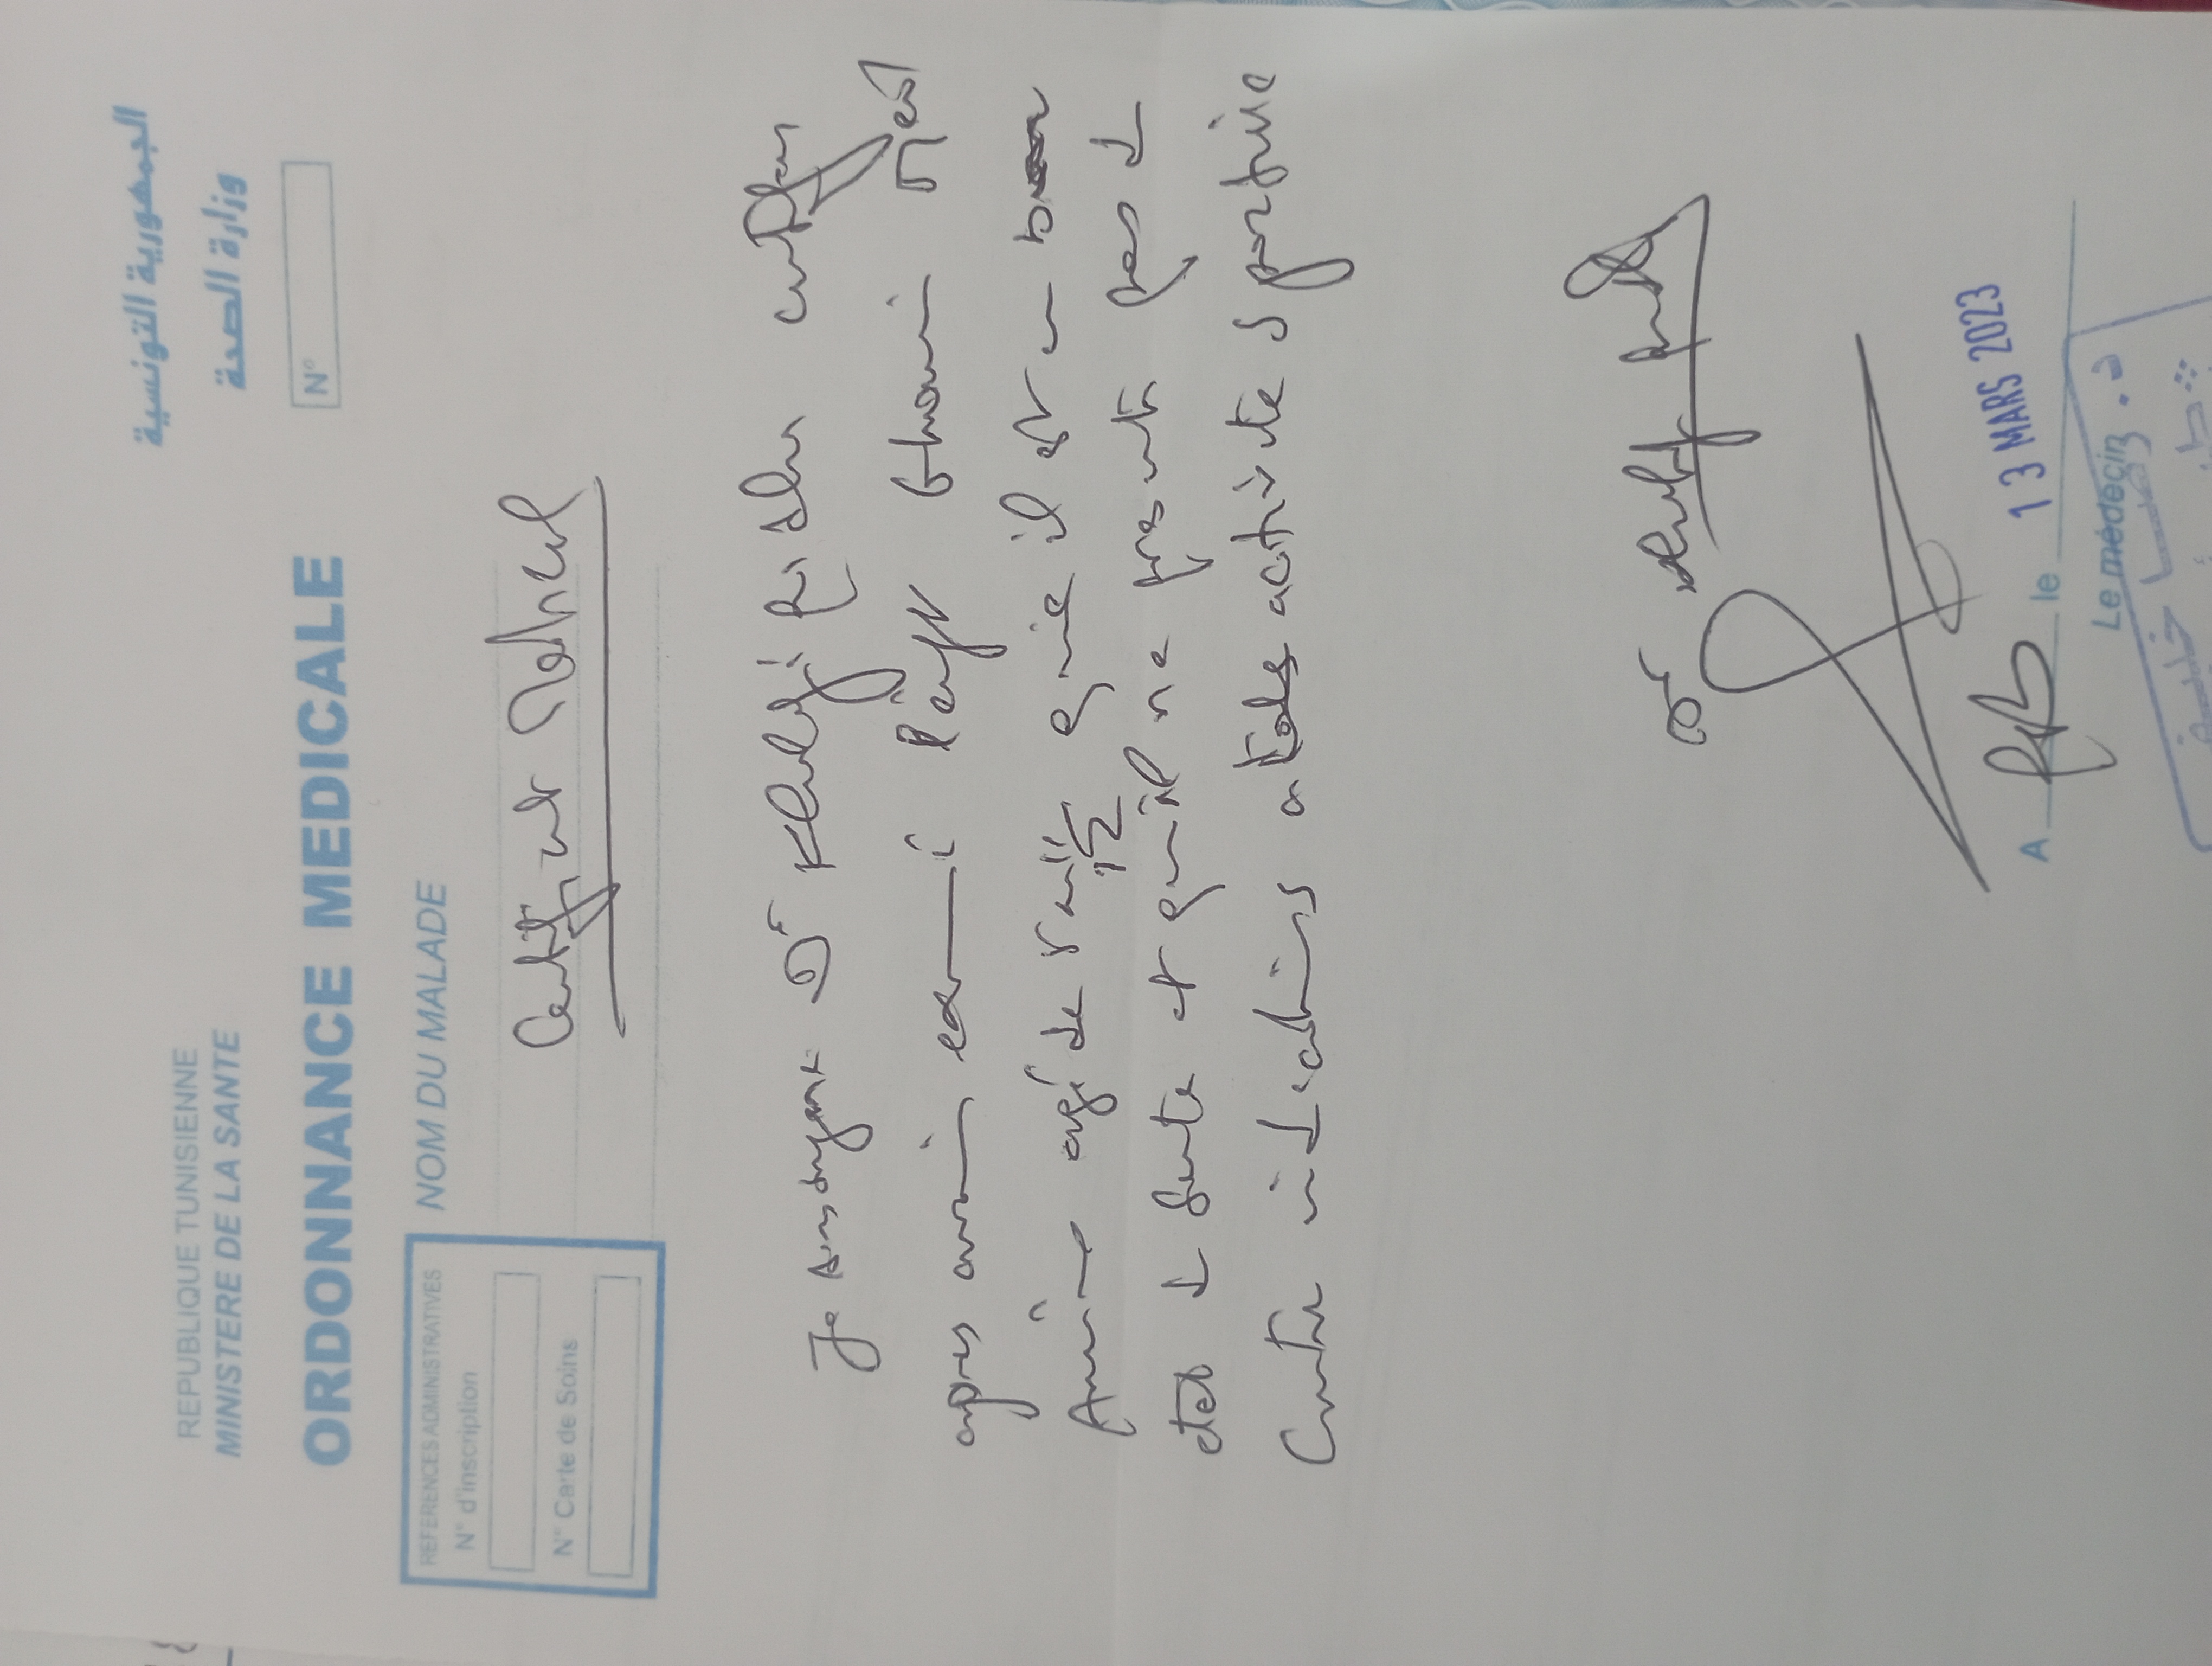 REPUBLIQUE TUNISIENNE
MINISTERE DE LA SANTE
الجمهورية التونسية
وزارة الصحة
ORDONNANCE MEDICALE
N°
REFERENCES ADMINISTRATIVES
N° d'inscription
N° Carte de Soins
NOM DU MALADE
Certificat Medical
Je soussigné Dr Khelifi Ridha certifie
après avoir examiné
Amine âgé de qu'il est en bon
état de santé et qu'il ne présente pas de
Contre indications a toute activité sportive
Dr
A le 13 MARS 2023
Le médecin